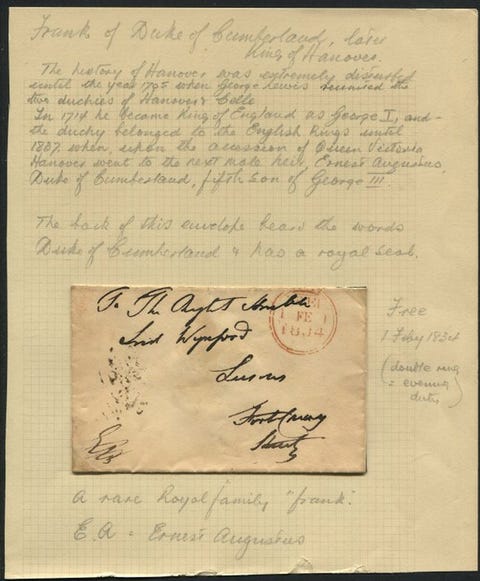 Frank of Duke of Cumberland, later
King of Hanover.
The history of Hanover was extremely disjointed
until the year 1705 when George Lewis reunited the
two duchies of Hanover & Celle
In 1714 he became King of England as George I, and
the duchy belonged to the English Kings until
1837 when, upon the accession of Queen Victoria
Hanover went to the next male heir, Ernest Augustus,
Duke of Cumberland, fifth son of George III.
The back of this envelope bears the words
Duke of Cumberland & has a royal seal.
To The Right Honble
Lord Wynford
FE
1834
Street
EA
Free
1 Feby 1834
(double ring
= evening
duty)
A rare Royal family "frank".
E.A = Ernest Augustus